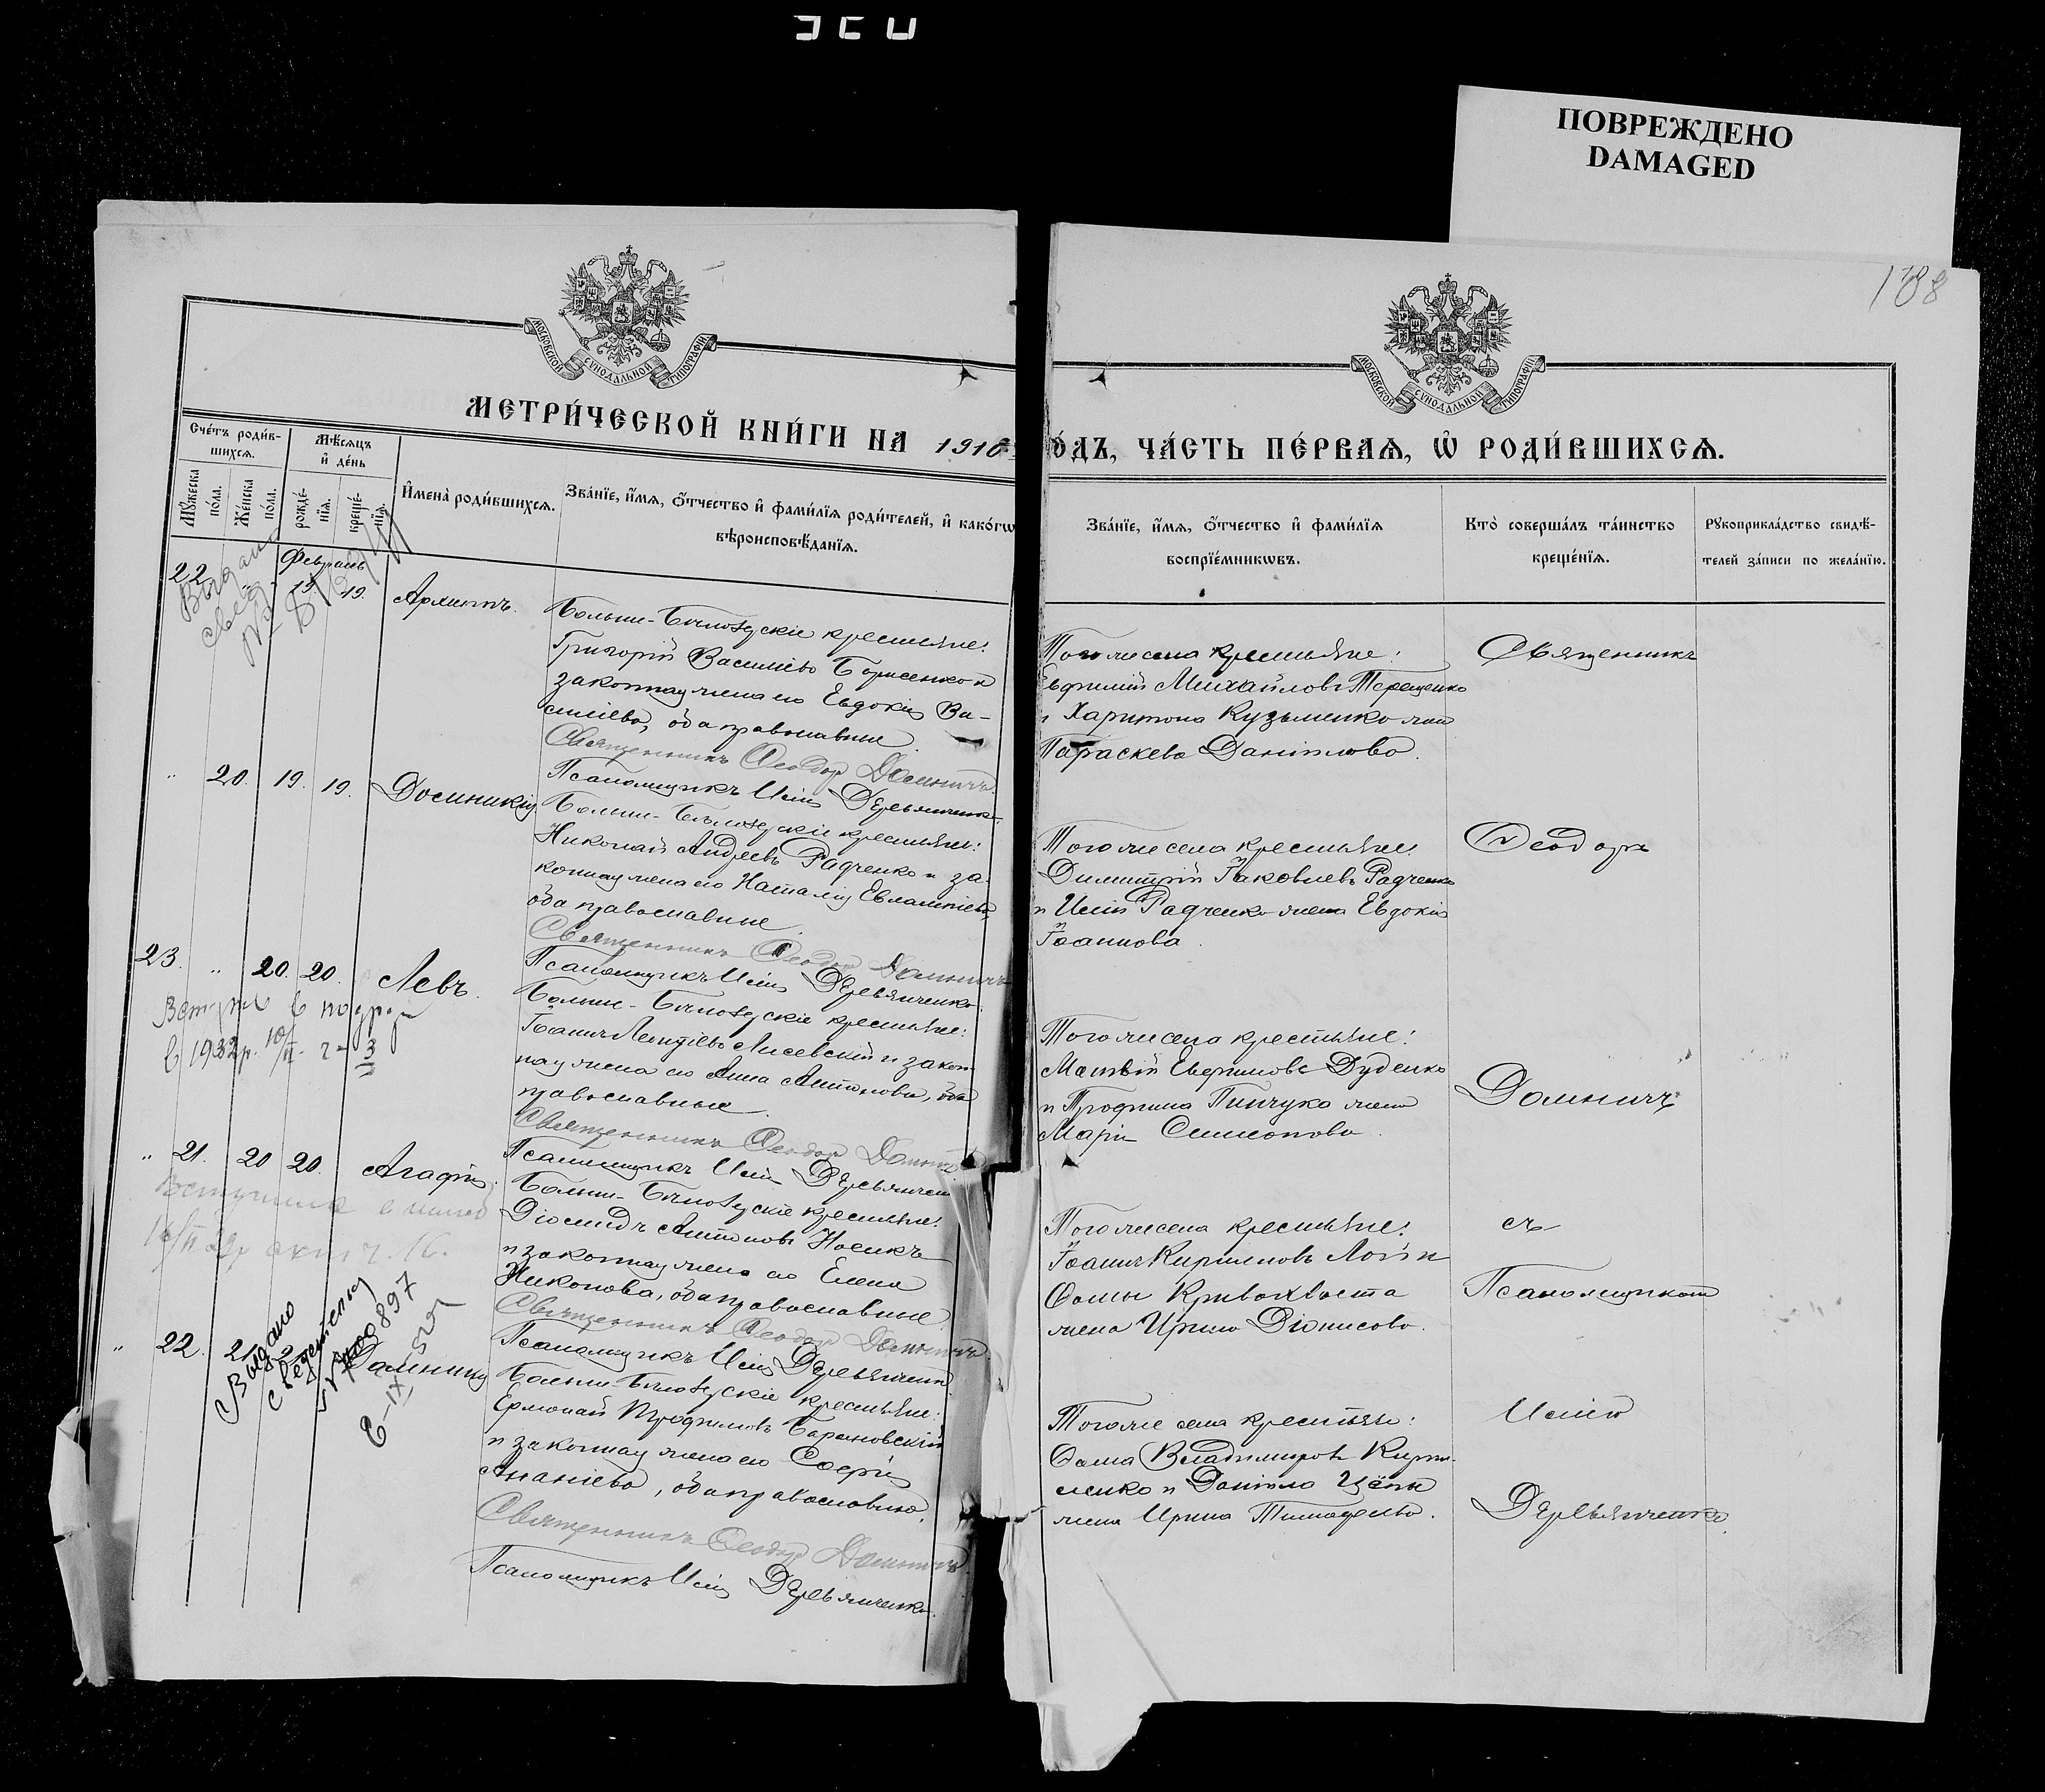 ПОВРЕЖДЕНО
DAMAGED
188
МОСКОВСКОЙ СѴНОДАЛЬНОЙ ТИПОГРАФІИ
МОСКОВСКОЙ СѴНОДАЛЬНОЙ ТИПОГРАФІИ
МЕТРИ́ЧЕСКОЙ КНИ́ГИ НА 1910
О́ДЪ, ЧА́СТЬ ПЕ́РВАѦ, Ѡ҆ РОДИ́ВШИХСѦ.
Сче́тъ роди́в-
шихсѧ.
Мꙋ́жеска по́ла.
Же́нска по́ла.
Мѣ́сѧцъ
и҆ де́нь
рожде́-
нїѧ.
креще́-
нїѧ.
И҆мена̀ роди́вшихсѧ.
Зва́нїе, и҆́мѧ, ѻ҆́тчество и҆ фами́лїѧ роди́телей, и҆ како́гѡ
вѣроисповѣ́данїѧ.
Зва́нїе, и҆́мѧ, ѻ҆́тчество и҆ фами́лїѧ
воспрїе́мникѡвъ.
Кто̀ соверша́лъ та́инство
креще́нїѧ.
Рꙋкоприкла́дство свидѣ́-
телей за́писи по жела́нїю.
Февраль
22 " 19. Архиппъ.
Больше-Бѣлозерскіе крестьяне:
Григорій Васильевъ Борисенко и
законная жена его Евдокія Ва-
сильева, оба православные.
Священникъ Ѳеодоръ Домничъ
Псаломщикъ Илія Деревянченко
Того же села крестьяне:
Евфимій Михайловъ Терещенко
и Харитона Кузьменко жена
Параскева Даніилова.
Священникъ
" 20. 19. 19.
Больше-Бѣлозерскіе крестьяне:
Николай Андреевъ Радченко и за-
конная жена его Наталія Евлампіева,
оба православные.
Священникъ Ѳеодоръ Домничъ
Псаломщикъ Илія Деревянченко
Того же села крестьяне:
Димитрій Іаковлевъ Радченко
и Иліи Радченко жена Евдокія
Іоаннова.
Ѳеодоръ
23. " 20. 20. Левъ.
в 1932р.
Больше-Бѣлозерскіе крестьяне:
Іоаннъ Лисевскій и закон-
ная жена его Анна Антонова, оба
православные.
Священникъ Ѳеодоръ Домничъ
Псаломщикъ Илія Деревянченко
Того же села крестьяне:
Матвій Евфимовъ Дуденко
и Трофима Пинчука жена
Марія Симеонова.
Домничъ
" 21. 20 20. Агафія.
Больше-Бѣлозерскіе крестьяне:
Діомидъ Антоновъ Носикъ
и законная жена его Елена
Никонова, оба православные.
Священникъ Ѳеодоръ Домничъ
Псаломщикъ Илія Деревянченко
Того же села крестьяне:
Іоаннъ Кирилловъ и
Ѳомы Кривохвоста
жена Ирина Діонисова.
съ
Псаломщикомъ
Выдано
" 22. 21
Больше-Бѣлозерскіе крестьяне:
Ермолай Трофимовъ Барановскій
и законная жена его Софія
Ананіева, оба православные.
Священникъ Ѳеодоръ Домничъ
Псаломщикъ Илія Деревянченко.
Того же села крестьяне:
Ѳома Владимировъ Кири-
ленко и Даніила
жена Ирина Тимофеева.
Иліею
Деревянченко.